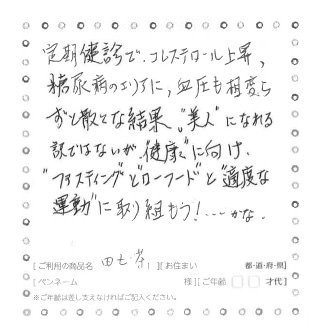 定期健診で、コレステロール上昇、
糖尿病のエリアに、血圧も相変ら
ずと散々な結果、“美人”になれる
訳ではないが、“健康”に向け、
“ファスティング”と“ローフード”と“適度な
運動”に取り組もう!…かな。
[ご利用の商品名 田七茶 ][お住まい 都・道・府・県]
[ペンネーム 様][ご年齢 才代]
※ご年齢は差し支えなければご記入ください。